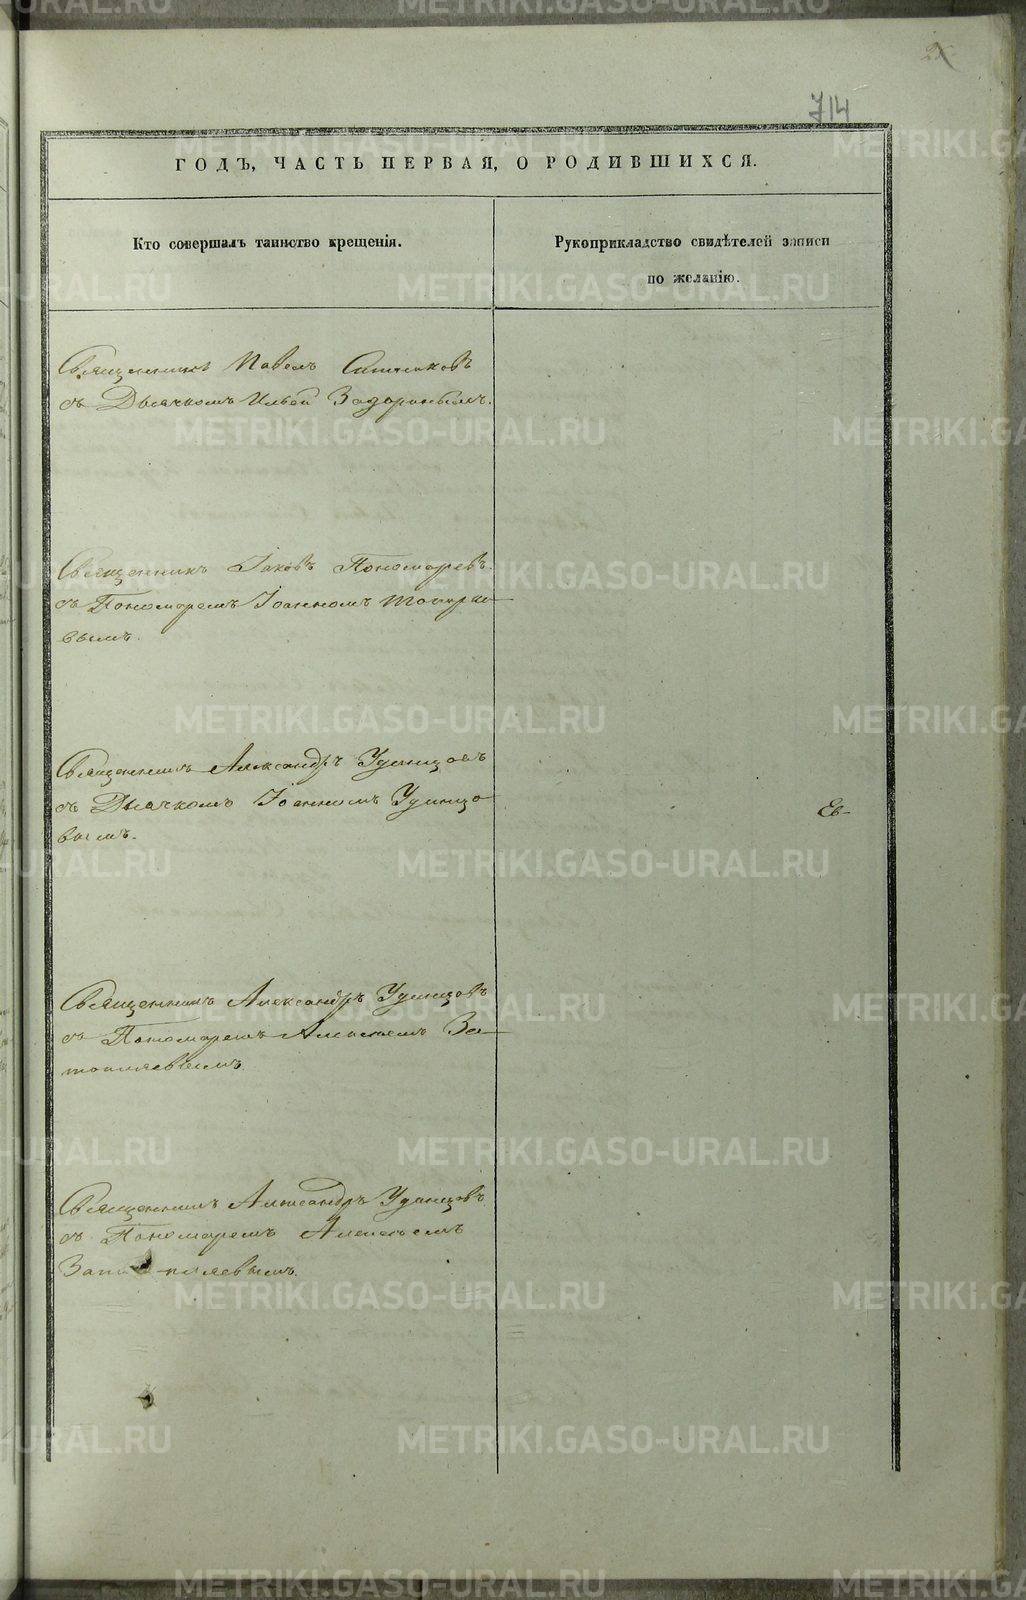 714
ГОДЪ, ЧАСТЬ ПЕРВАЯ, О РОДИВШИХСЯ.
Кто совершалъ таинство крещенія.
Рукоприкладство свидѣтелей записи
по желанію.
Священникъ Павелъ
съ Дьячкомъ Ильей
Священникъ Іаковъ Пономаревъ
съ Пономаремъ Іоанномъ
вымъ.
Священникъ Александръ Удинцовъ
съ Дьячкомъ Іоанномъ Удинцо
вымъ.
Священникъ Александръ Удинцовъ
съ Пономаремъ Алексѣемъ За
Священникъ Александръ Удинцовъ
съ Пономаремъ Алексѣемъ
METRIKI.GASO-URAL.RU